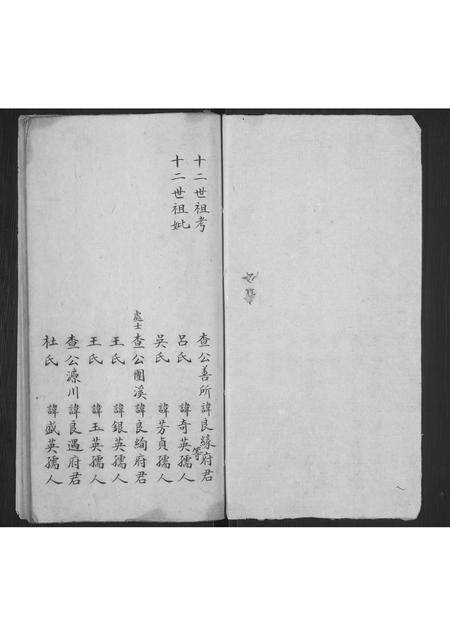 十二世祖考
十二世祖妣
查公善所 諱良緣府君
呂氏 諱奇英孺人
等
吳氏 諱芳貞孺人
處士查公園溪 諱良絢府君
王氏 諱銀英孺人
王氏 諱玉英孺人
查公濠川 諱良遇府君
杜氏 諱盛英孺人